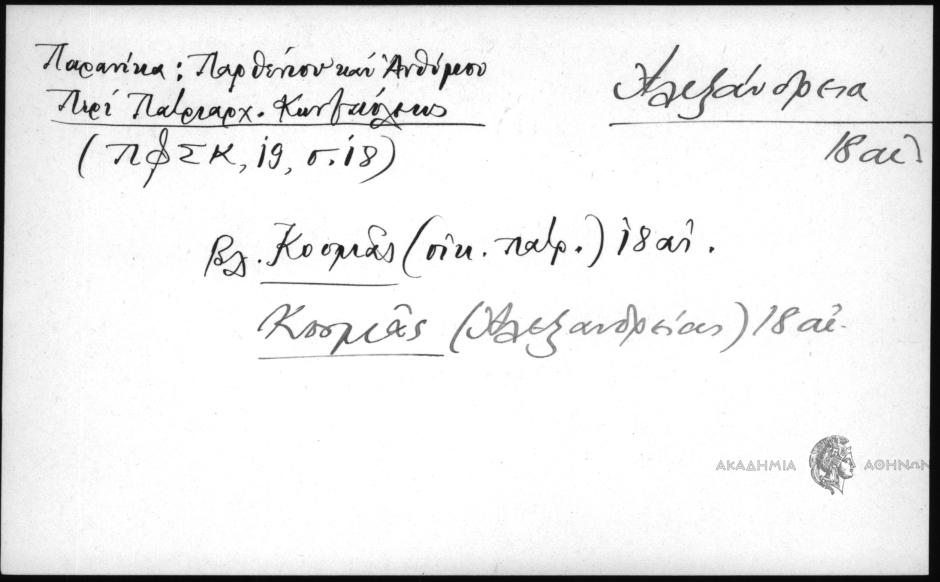 Παρανίκα: Παρθενίου καὶ Ἀνθίμου
Περὶ Πατριαρχ. Κων/πόλεως
(ΠΦΣΚ, 19, σ. 18)
Ἀλεξάνδρεια
18 αἰ
βλ. Κοσμᾶς (οἰκ. πατρ.) 18 αἰ.
Κοσμᾶς (Ἀλεξανδρείας) 18 αἰ.
ΑΚΑΔΗΜΙΑ ΑΘΗΝΩΝ